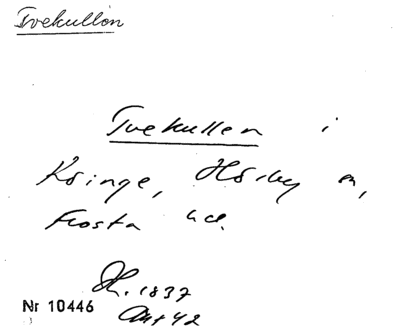 Tvekullen
Tvekullen i
Kringe, Hörby sn,
Frosta hd.
H. 1837
Akt 42
Nr 10446